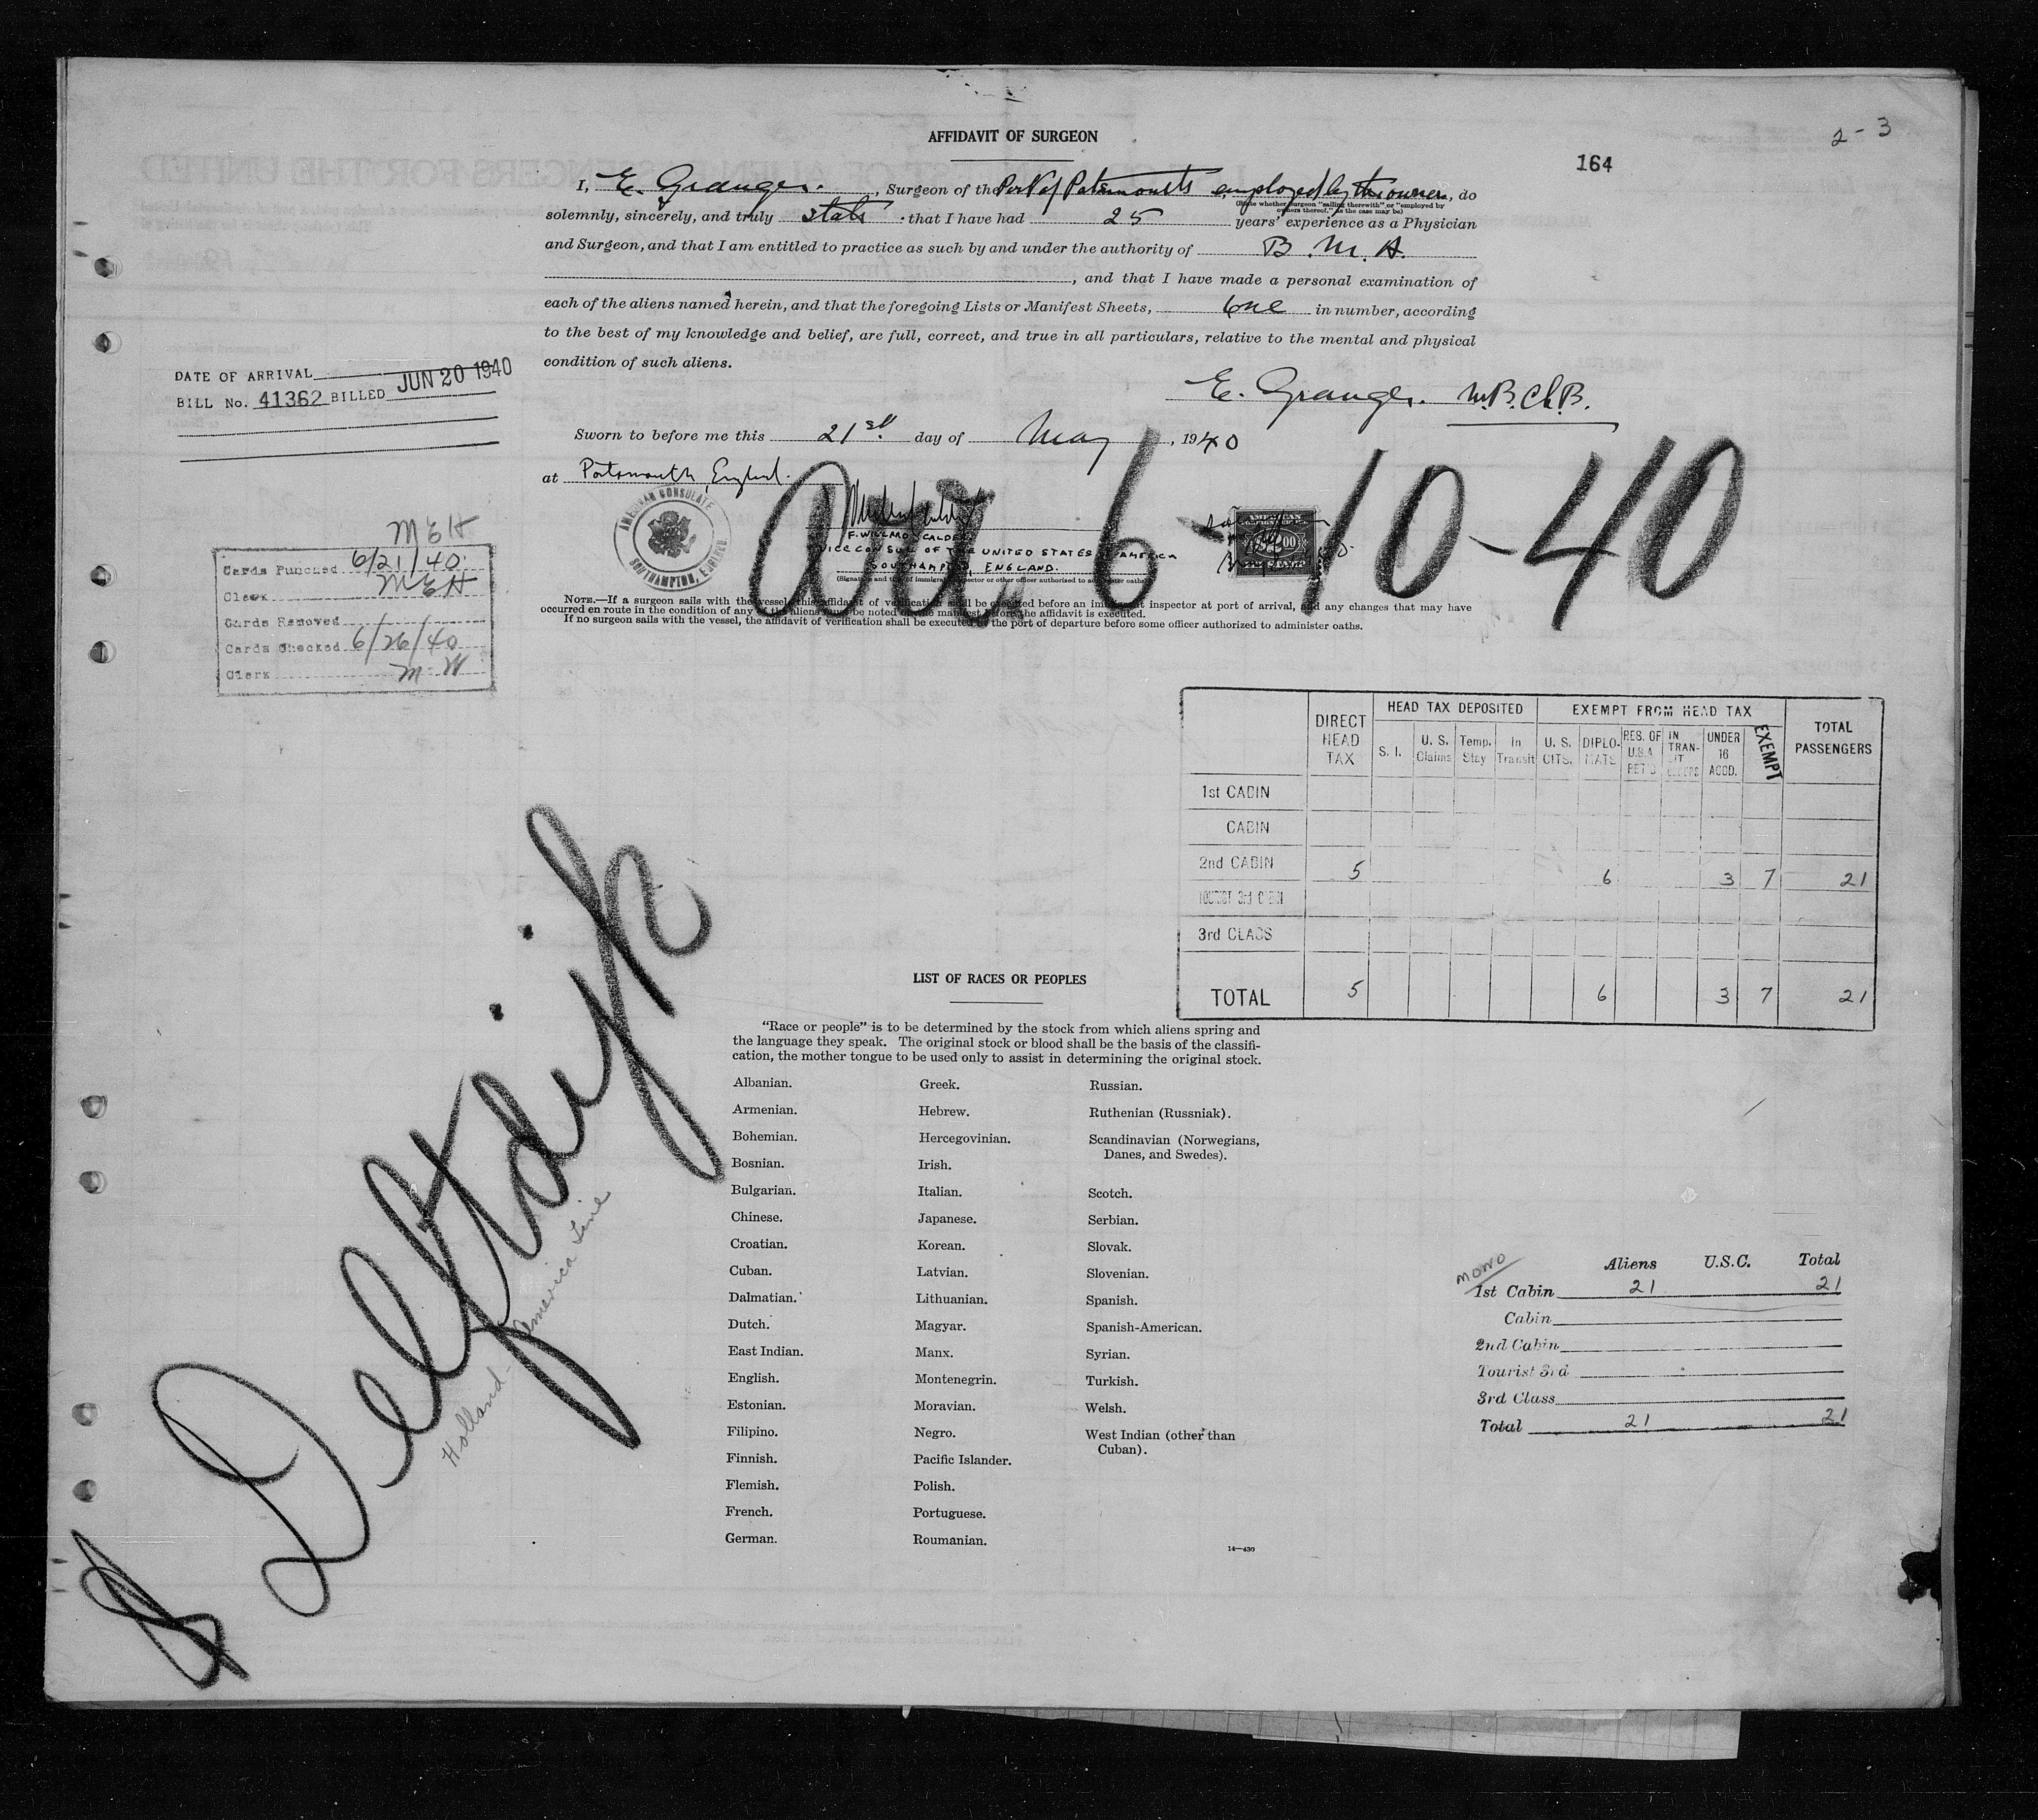 2-3
164
AFFIDAVIT OF SURGEON
I, E. Granger. , Surgeon of the Port of Portsmouth employed by the owner, do
(State whether surgeon "sailing therewith" or "employed by
owners thereof," as the case may be)
solemnly, sincerely, and truly state : that I have had 25 years' experience as a Physician
and Surgeon, and that I am entitled to practice as such by and under the authority of B. M. A.
, and that I have made a personal examination of
each of the aliens named herein, and that the foregoing Lists or Manifest Sheets, One in number, according
to the best of my knowledge and belief, are full, correct, and true in all particulars, relative to the mental and physical
condition of such aliens.
DATE OF ARRIVAL
BILL No. 41362 BILLED JUN 20 1940
E. Granger. M.B.Ch.B.
Sworn to before me this 21st. day of May , 1940
at Portsmouth, England.
arr 6-10-40
AMERICAN CONSULATE
SOUTHAMPTON, ENGLAND
F. WILLARD CALDER
VICE CONSUL OF THE UNITED STATES OF AMERICA
SOUTHAMPTON ENGLAND.
(Signature and title of immigrant inspector or other officer authorized to administer oaths)
AMERICAN
NOTE.—If a surgeon sails with the vessel, this affidavit of verification shall be executed before an immigrant inspector at port of arrival, and any changes that may have
occurred en route in the condition of any of the aliens must be noted on the manifest before the affidavit is executed.
If no surgeon sails with the vessel, the affidavit of verification shall be executed at the port of departure before some officer authorized to administer oaths.
MEH
Cards Punched 6/21/40
Clerk MEH
Cards Removed
Cards Checked 6/26/40
Clerk M-W
DIRECT HEAD TAX
HEAD TAX DEPOSITED
EXEMPT FROM HEAD TAX
TOTAL PASSENGERS
S. I. U. S. Claims Temp. Stay In Transit U. S. CITS. DIPLOMATS RES. OF U.S.A. RET'G IN TRANSIT UNDER 16 ACCD. EXEMPT
1st CABIN
CABIN
2nd CABIN 5 6 3 7 21
TOURIST 3rd CABIN
3rd CLASS
TOTAL 5 6 3 7 21
SS Delftdijk
Holland-America Line
LIST OF RACES OR PEOPLES
"Race or people" is to be determined by the stock from which aliens spring and
the language they speak. The original stock or blood shall be the basis of the classifi-
cation, the mother tongue to be used only to assist in determining the original stock.
Albanian.
Armenian.
Bohemian.
Bosnian.
Bulgarian.
Chinese.
Croatian.
Cuban.
Dalmatian.
Dutch.
East Indian.
English.
Estonian.
Filipino.
Finnish.
Flemish.
French.
German.
Greek.
Hebrew.
Hercegovinian.
Irish.
Italian.
Japanese.
Korean.
Latvian.
Lithuanian.
Magyar.
Manx.
Montenegrin.
Moravian.
Negro.
Pacific Islander.
Polish.
Portuguese.
Roumanian.
Russian.
Ruthenian (Russniak).
Scandinavian (Norwegians,
Danes, and Swedes).
Scotch.
Serbian.
Slovak.
Slovenian.
Spanish.
Spanish-American.
Syrian.
Turkish.
Welsh.
West Indian (other than
Cuban).
14—430
Aliens U.S.C. Total
MONO
1st Cabin 21 21
Cabin
2nd Cabin
Tourist 3rd
3rd Class
Total 21 21